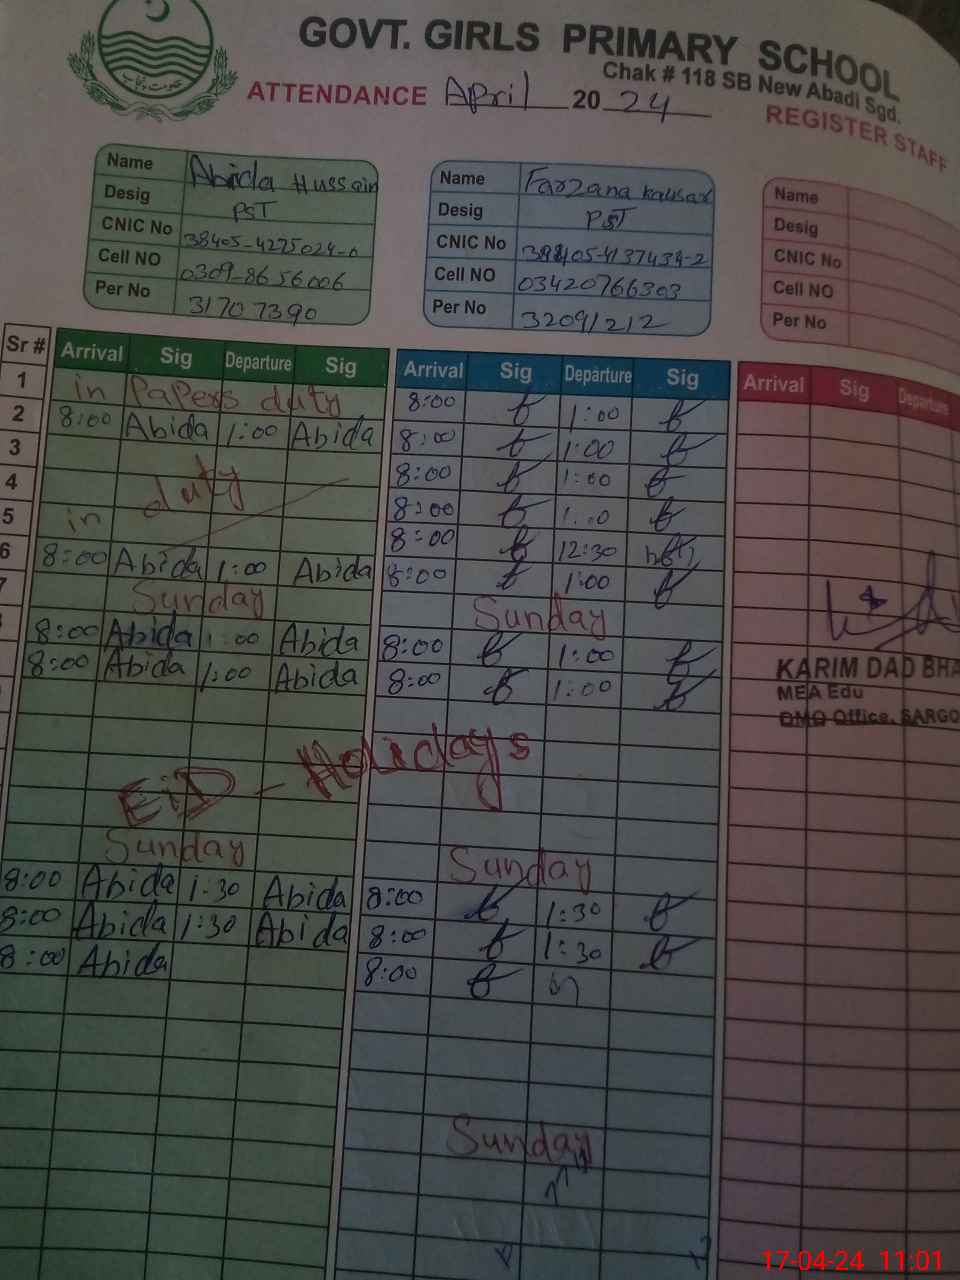 GOVT. GIRLS PRIMARY SCHOOL
Chak # 118 SB New Abadi Sgd.
ATTENDANCE April 20 24 REGISTER STAFF
Name Abida Hussain
Desig PST
CNIC No 38405-4275024-0
Cell NO 0309-8656006
Per No 31707390
Name Farzana Kausar
Desig PST
CNIC No 38405-4137434-2
Cell NO 03420766303
Per No 32091212
Name
Desig
CNIC No
Cell NO
Per No
Sr # Arrival Sig Departure Sig Arrival Sig Departure Sig Arrival Sig Departure
1 in Papers duty 8:00 1:00
2 8:00 Abida 1:00 Abida 8:00 1:00
3 8:00 1:00
4 in duty 8:00
5 8:00 12:30
6 8:00 Abida 1:00 Abida 8:00 1:00
7 Sunday Sunday
8:00 Abida 1:00 Abida 8:00 1:00
8:00 Abida 1:00 Abida 8:00 1:00
KARIM DAD BHA
MEA Edu
DMO Office, SARGO
EiD - Holidays
Sunday Sunday
8:00 Abida 1:30 Abida 8:00 1:30
8:00 Abida 1:30 Abida 8:00 1:30
8:00 Abida 8:00
Sunday
17-04-24 11:01